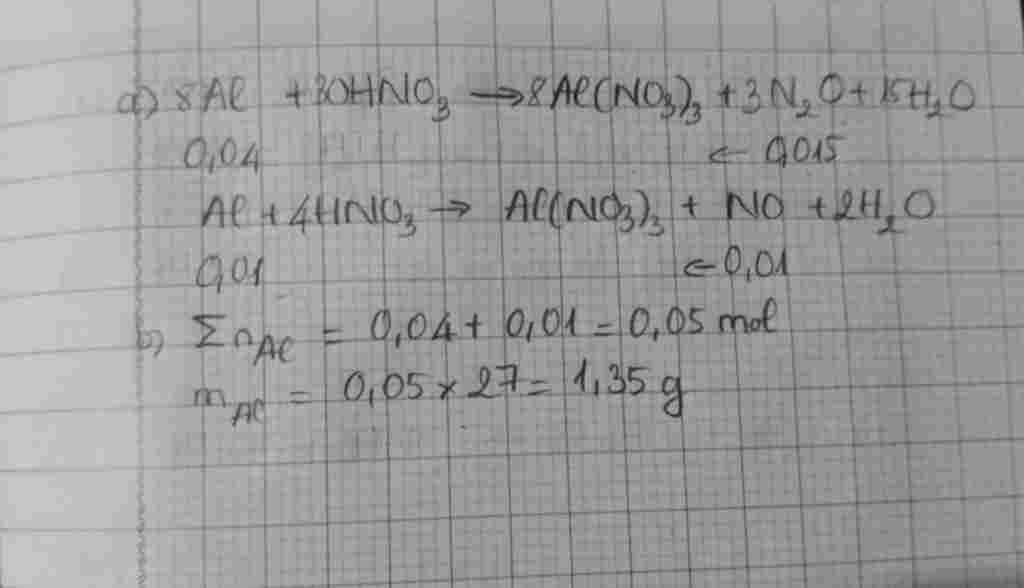 a) 8Al + 30HNO₃ → 8Al(NO₃)₃ + 3N₂O + 15H₂O
0,04 ← 0,015
Al + 4HNO₃ → Al(NO₃)₃ + NO + 2H₂O
0,01 ← 0,01
b) Σn_Al = 0,04 + 0,01 = 0,05 mol
m_Al = 0,05 × 27 = 1,35 g